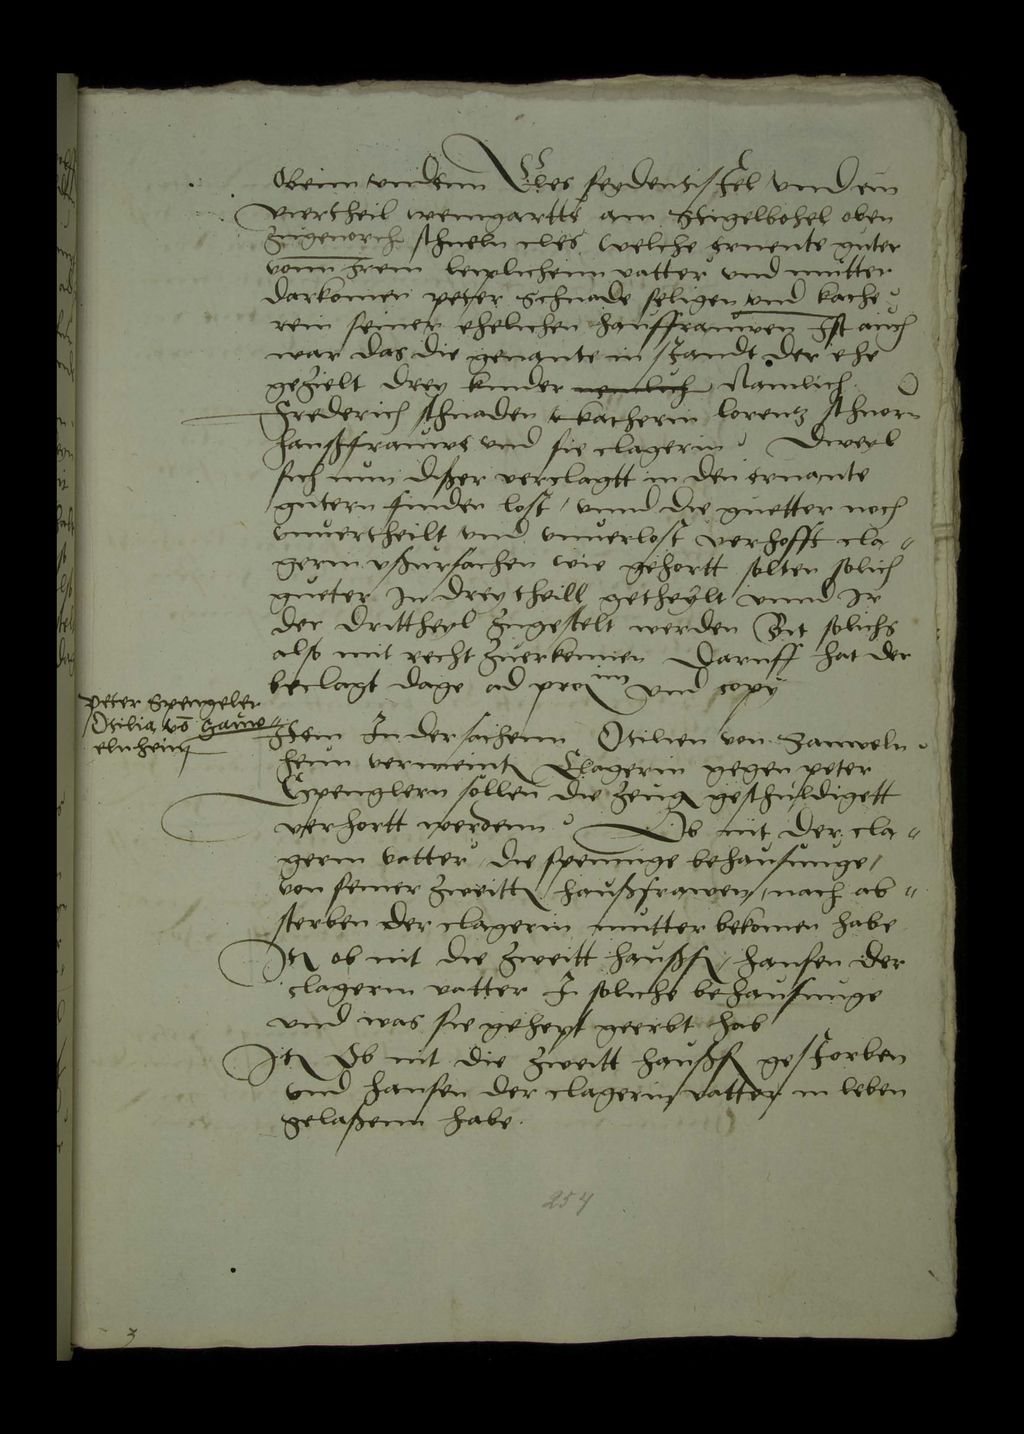 Obenn vndenn Cles seydensiffel vnd ein
viertheil wemgartts am Stigelbohel oben
zugenorch schneln cles welche ernente guter
vonn Jrem leiplichenn vatter vnd mutter
darkomen peter Schnade seligen vnd kathe
rein seiner ehelichen haussfrauwen Jst auch
war das die genante in standt der ehe
gezielt drey kinder nemlich Namlich
Frederich schnaden katherin lorentz schnorn
haußfrauwe vnd sie clagerin Dweyl
sich nun dißer verclagtt in den ernante
gutern finden lost / vnnd die guetter noch
vnuertheilt vnd vnuerlost verhofft cla"
gerin vßursachen wie gehortt solten solich
gueter In drey theill getheylt vnnd Jr
der drittheyl zugestelt werden Bit solichs
also mit recht zuerkennen Daruff hat der
beclagt dage ad prox im vnd copy
peter Spengeler
Otilia vō Sauw"
elnheim
Item In der sachenn Otilien von Sauweln
heim vermeint Clagerin gegen peter
Spenglern sollen die zeug geschuldigett
verhortt werdenn Ob nit der cla"
gerin vatter die spennige behausunge /
von seiner zweitt haußfrawen / nach ab"
sterben der clagerin mutter bekomen habe
Jt ob nit die zweitt haußf / hansen der
clagerin vatter In soliche behausunge
vnd was sie gehept geerbt hab
Jt Ob nit die zweitt haußf gestorben
vnd hansen der clagerin vatter in leben
gelaßenn habe.
254
3